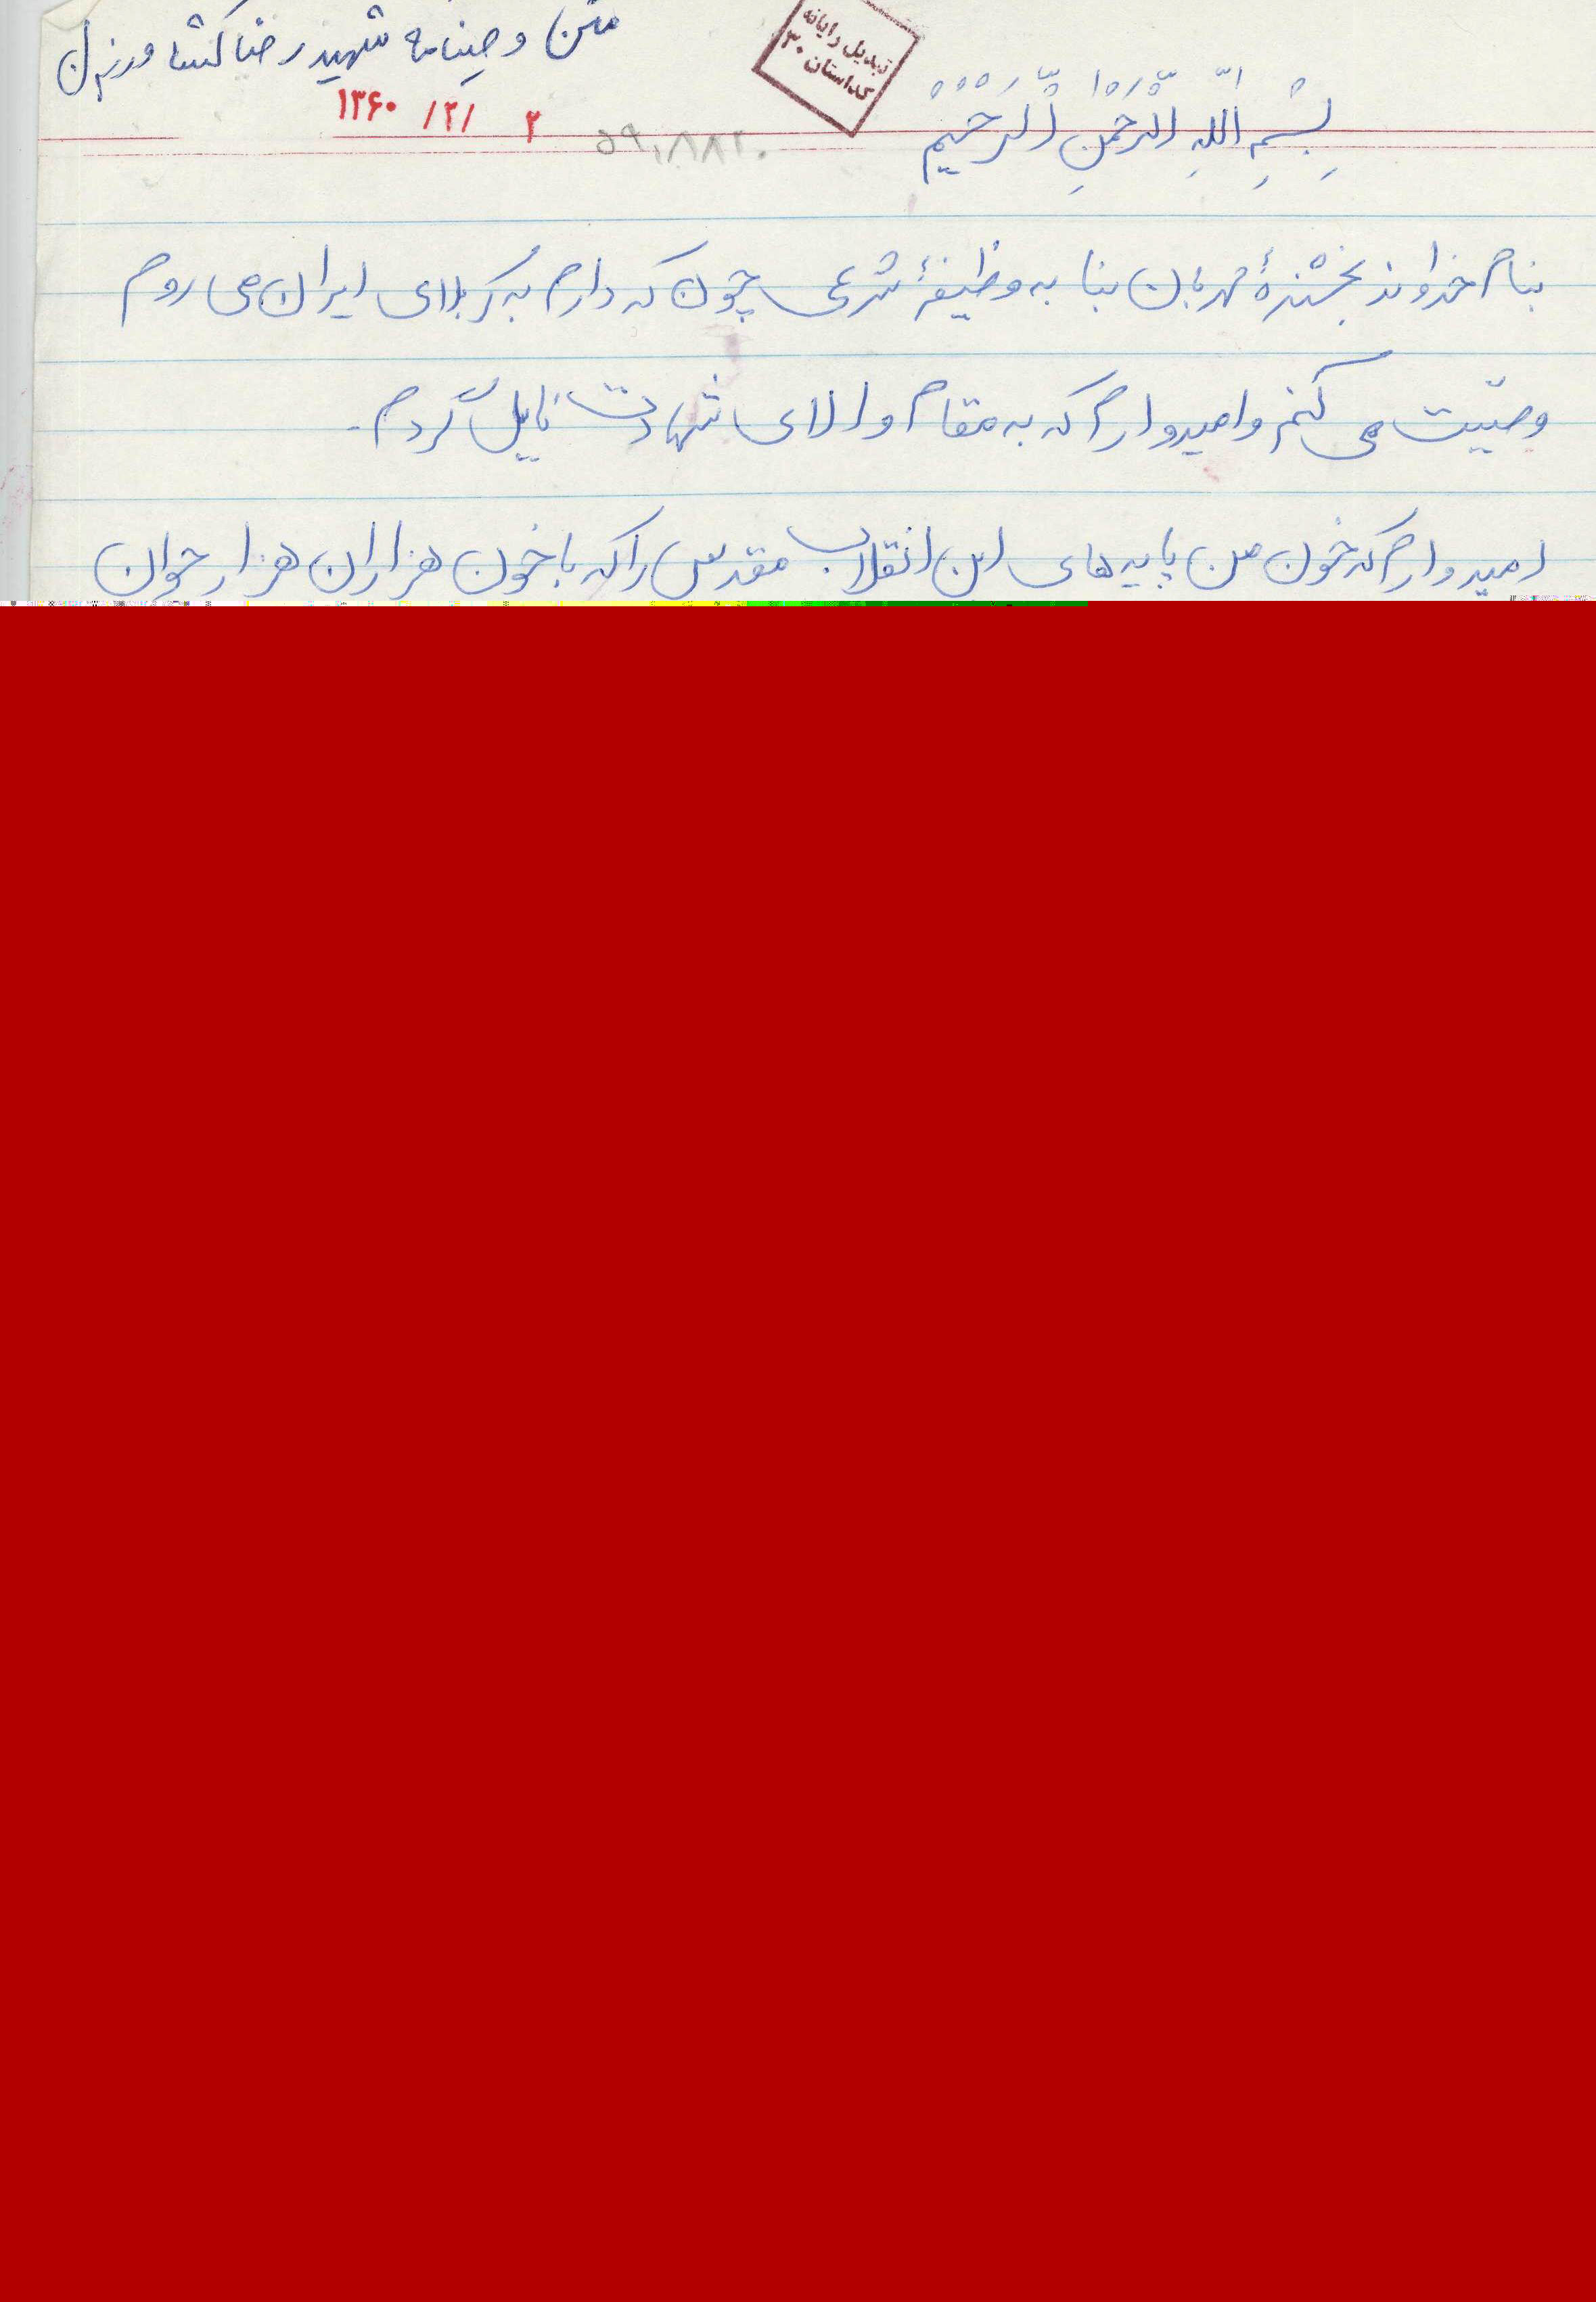 متن وصینامه شهید رضا کشاورزیان
تبدیل رایانه
کداستان ۳۰
بِسْمِ اللّهِ الرَّحْمنِ الرَّحْیمْ
۱۳۶۰ /۲/ ۲
۵۹۱۸۸۲۰
بنام خداوند بخشندهٔ مهربان بنا به وظیفهٔ شرعی چون که دارم به کربلای ایران می روم
وصیّت می کنم و امیدوارم که به مقام والای شهادت نایل گردم.
امیدوارم که خون من پایه های این انقلاب مقدس را که با خون هزاران هزار جوان